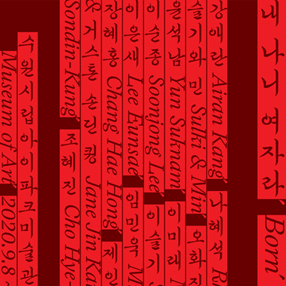 내 나니 여자라, Born
강애란 Airan Kang 나혜석
슬기와 민 Sulki & Min 오화진
윤석남 Yun Suknam 이미래
이순종 Soonjong Lee 이슬기
이은새 Lee Eunsae 임민욱
장혜홍 Chang Hae Hong 제인
& 거스톤 손딘 퀑 Jane Jin Ka
Sondin-Kung 조혜진 Cho Hye
수원시립아이파크미술관
Museum of Art 2020.9.8